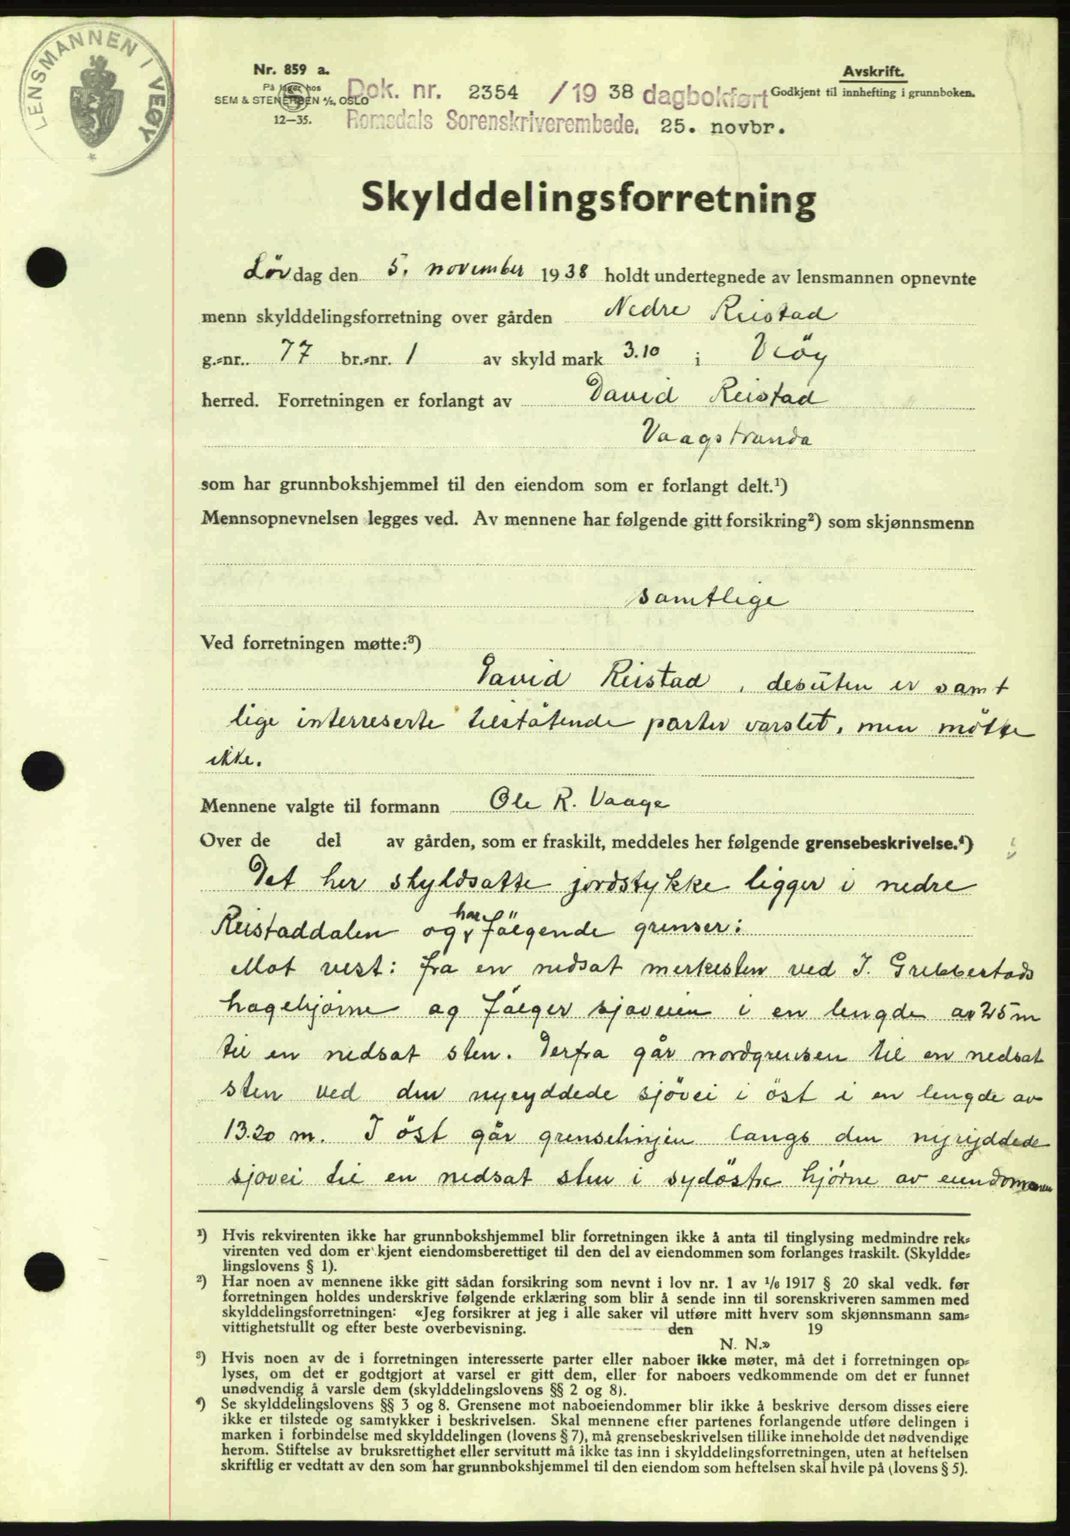 LENSMANNEN I VEØY
Nr. 859 a.
På lager hos
SEM & STENERSEN A/S, OSLO
12—35.
Dok. nr. 2354 /19 38 dagbokført
Romsdals Sorenskriverembede. 25. novbr.
Avskrift.
Godkjent til innhefting i grunnboken.
Skylddelingsforretning
Lørdag den 5. november 1938 holdt undertegnede av lensmannen opnevnte
menn skylddelingsforretning over gården Nedre Reistad
g.-nr. 77 br.-nr. 1 av skyld mark 3.10 i Veöy
herred. Forretningen er forlangt av David Reistad
Vaagstranda
som har grunnbokshjemmel til den eiendom som er forlangt delt.¹)
Mennsopnevnelsen legges ved. Av mennene har følgende gitt forsikring²) som skjønnsmenn
samtlige
Ved forretningen møtte:³)
David Reistad, desuten er samt
lige interreserte tilstötende parter varslet, men mötte
ikke.
Mennene valgte til formann Ole R. Vaage
Over de del av gården, som er fraskilt, meddeles her følgende grensebeskrivelse.⁴)
Det her skyldsatte jordstykke ligger i nedre
Reistaddalen og har fölgende grenser:
Mot vest: fra en nedsat merkesten ved J. Grebbestads
hagehjörne og fölger sjöveien i en lengde av 25 m
til en nedsat sten. Derfra går nordgrensen til en nedsat
sten ved den nyryddede sjövei i öst i en lengde av
13.20 m. I öst går grenselinjen langs den nyryddede
sjövei til en nedsat sten i sydöstre hjörne av eiendommen
¹) Hvis rekvirenten ikke har grunnbokshjemmel blir forretningen ikke å anta til tinglysing medmindre rek-
virenten ved dom er kjent eiendomsberettiget til den del av eiendommen som forlanges fraskilt. (Skyldde-
lingslovens § 1).
²) Har noen av mennene ikke gitt sådan forsikring som nevnt i lov nr. 1 av 1/6 1917 § 20 skal vedk. før
forretningen holdes underskrive følgende erklæring som blir å sende inn til sorenskriveren sammen med
skylddelingsforretningen: «Jeg forsikrer at jeg i alle saker vil utføre mitt hverv som skjønnsmann sam-
vittighetsfullt og efter beste overbevisning. den 19
N. N.»
³) Hvis noen av de i forretningen interesserte parter eller naboer ikke møter, må det i forretningen op-
lyses, om det er godtgjort at varsel er gitt dem, eller for naboers vedkommende om det er funnet
unødvendig å varsle dem (skylddelingslovens §§ 2 og 8).
⁴) Se skylddelingslovens §§ 3 og 8. Grensene mot naboeiendommer blir ikke å beskrive dersom disses eiere
ikke er tilstede og samtykker i beskrivelsen. Skal mennene efter partenes forlangende utføre delingen i
marken i forbindelse med skylddelingen (lovens § 7), må grensebeskrivelsen tillike inneholde det nødvendige
herom. Stiftelse av bruksrettighet eller servitutt må ikke tas inn i skylddelingsforretningen, uten at heftelsen
skriftlig er vedtatt av den som har grunnbokshjemmel til den eiendom som heftelsen skal hvile på (lovens § 5).